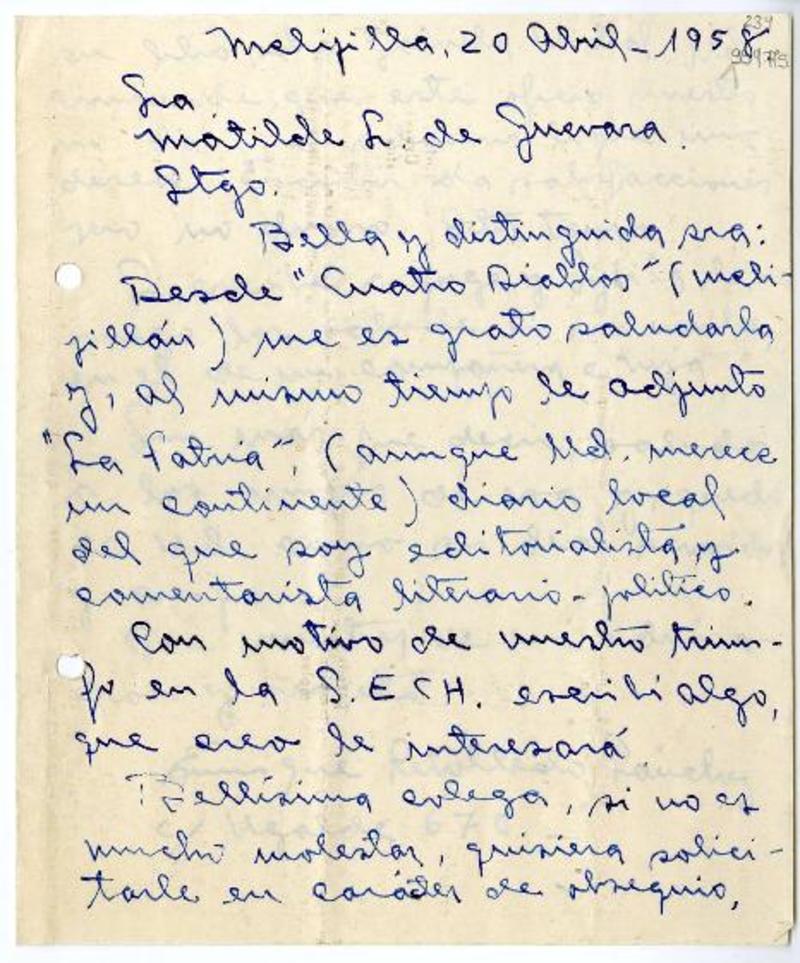 234
Melipilla, 20 Abril - 1958
Sra
Matilde L. de Guevara.
Stgo.
Bella y distinguida sra:
Desde "Cuatro Diablos" (meli-
pillán) me es grato saludarla
y, al mismo tiempo le adjunto
"La Patria", (aunque Ud. merece
un continente) diario local
del que soy editorialista y
comentarista literario-político.
Con motivo de nuestro triun-
fo en la S.ECH. escribí algo,
que creo le interesará
Bellísima colega, si no es
mucho molestar, quisiera solici-
tarle en carácter de obsequio,